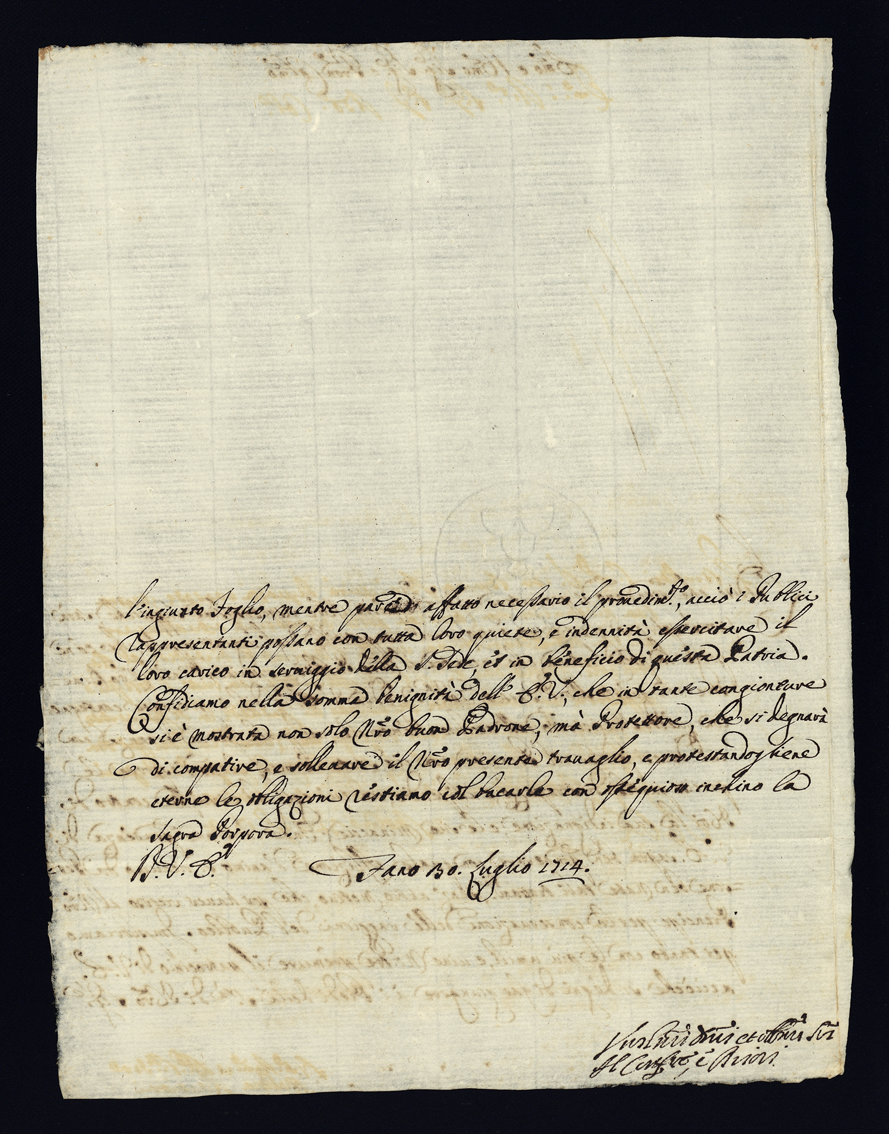 l'ingiunto Foglio, mentre parci di affatto necessario il provedim.to, acciò i Publici
rappresentanti possano con tutta loro quiete, e indennità essercitare il
loro carico in serviggio della S. Sede, et in beneficio di questa Patria.
Confidiamo nella somma benignità dell' E. V., che in tante congionture
si è mostrata non solo Nro buon Padrone, mà Protettore, che si degnarà
di compatire, e sollevare il Nro presente travaglio, e protestandogliene
eterne le obligazioni restiamo col baciarle con ossequioso inchino la
sagra Porpora.
D. V. E.
Fano 30. Luglio 1714.
et Servi
Il Confre, e Priori